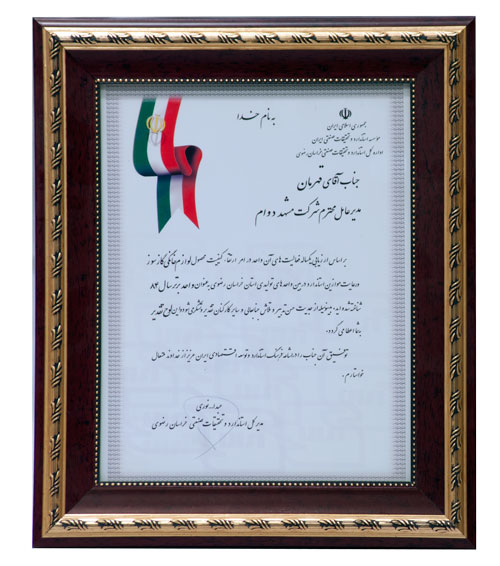 به نام خدا
جمهوری اسلامی ایران
مؤسسه استاندارد و تحقیقات صنعتی ایران
اداره کل استاندارد و تحقیقات صنعتی خراسان رضوی
جناب آقای قهرمان
مدیر عامل محترم شرکت مشهد دوام
بر اساس ارزیابی یکساله فعالیت‌های آن واحد در امر ارتقاء کیفیت محصول لوازم خانگی گازسوز
و رعایت موازین استاندارد در بین واحدهای تولیدی استان خراسان رضوی به عنوان واحد برتر سال ۸۴
شناخته شده‌اید. بدینوسیله از جدیت حسن تدبیر و تلاش جنابعالی و سایر کارکنان تقدیر و تشکر می‌شود این لوح تقدیر
به شما اعطا می گردد.
توفیق آن جناب را در اشاعه فرهنگ استاندارد و توسعه اقتصادی ایران عزیز از خداوند متعال
خواستارم.
نوری
مدیر کل استاندارد و تحقیقات صنعتی خراسان رضوی